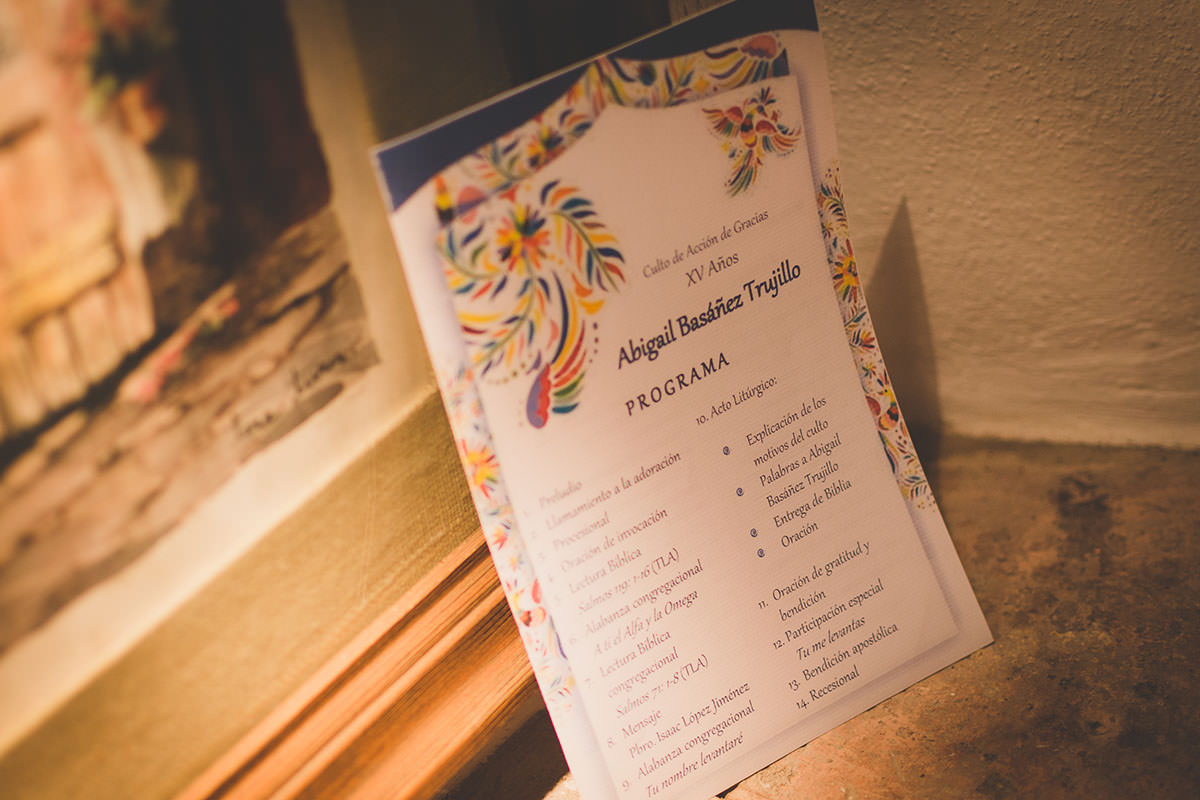 Culto de Acción de Gracias
XV Años
Abigail Basáñez Trujillo
PROGRAMA
1. Preludio
2. Llamamiento a la adoración
3. Processonal
4. Oración de invocación
5. Lectura Bíblica
Salmos 119: 1-16 (TLA)
6. Alabanza congregacional
A ti el Alfa y la Omega
7. Lectura Bíblica
congregacional
Salmos 71: 1-8 (TLA)
8. Mensaje
Pbro. Isaac López Jiménez
9. Alabanza congregacional
Tu nombre levantaré
10. Acto Litúrgico:
Explicación de los
motivos del culto
Palabras a Abigail
Basáñez Trujillo
Entrega de Biblia
Oración
11. Oración de gratitud y
bendición
12. Participación especial
Tu me levantas
13. Bendición apostólica
14. Recesional